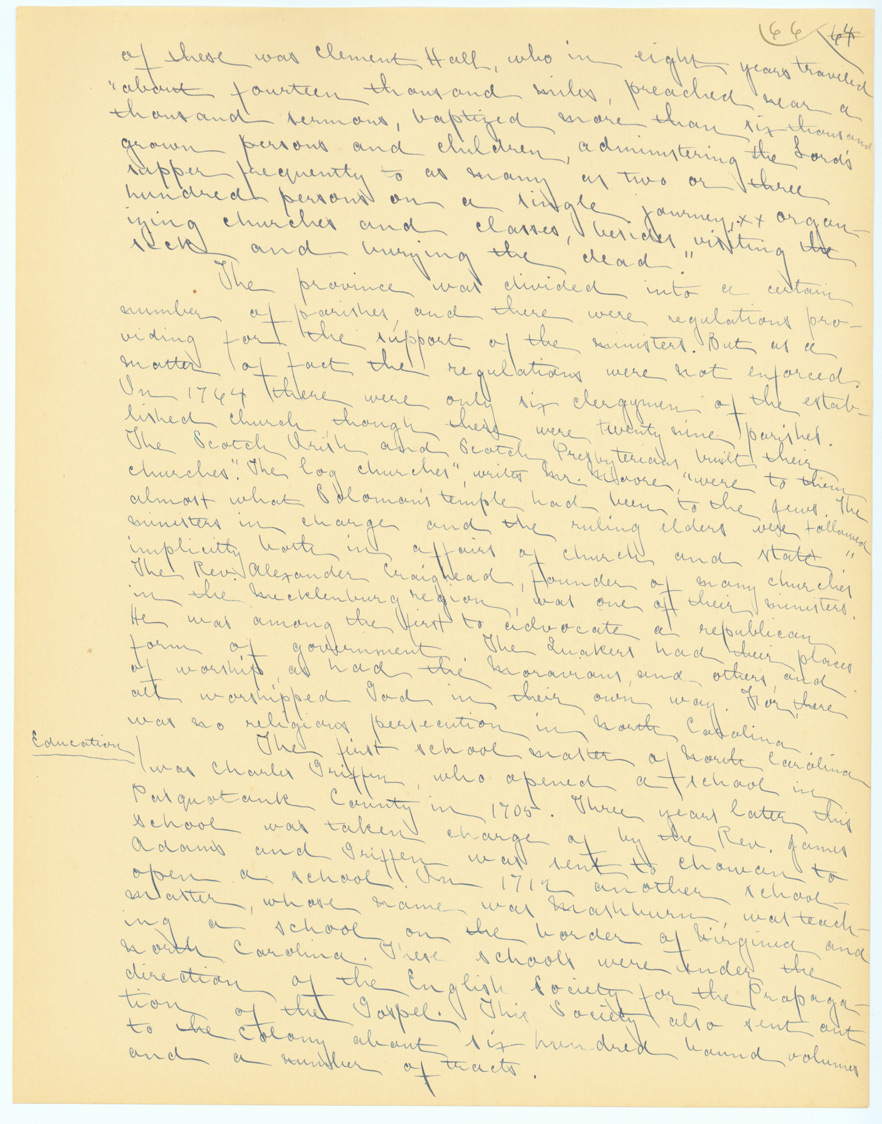 66 64
of these was Clement Hall, who in eight years traveled
"about fourteen thousand miles, preached near a
thousand sermons, baptized more than six thousand
grown persons and children, administering the Lord's
supper frequently to as many as two or three
hundred persons on a single journey, xx organ-
izing churches and classes, besides visiting the
sick and burying the dead."
The province was divided into a certain
number of parishes, and there were regulations pro-
viding for the support of the ministers. But as a
matter of fact the regulations were not enforced.
In 1764 there were only six clergymen of the estab-
lished church though there were twenty nine parishes.
The Scotch Irish and Scotch Presbyterians built their
churches". The log churches", writes Mr. Moore, "were to them
almost what Soloman's temple had been to the Jews. The
ministers in charge and the ruling elders were followed
implicitly both in affairs of church and state."
The Rev. Alexander Craighead, founder of many churches
in the Mecklenburg region, was one of their ministers.
He was among the first to advocate a republican
form of government. The Quakers had their places
of worship, as had the Moravians, and others, and
all worshipped God in their own way. For, there
was no religious persecution in North Carolina.
Education/ The first school master of North Carolina
was Charles Griffin, who opened a school in
Pasquotank County in 1705. Three years later this
school was taken charge of by the Rev. James
Adams and Griffin was sent to Chowan to
open a school. In 1712 another school-
master, whose name was Mashburn, was teach-
ing a school on the border of Virginia and
North Carolina. These schools were under the
direction of the English Society for the Propaga-
tion of the Gospel. This Society also sent out
to the colony about six hundred bound volumes
and a number of tracts.